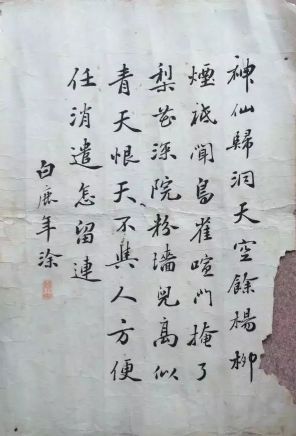 神仙歸洞天空餘楊柳
煙祗聞鳥雀喧門掩了
梨花深院粉墻兒高似
青天恨天不與人方便
任消遣怎留連
白鹿年涂